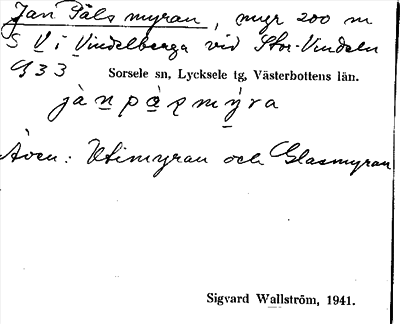 Jan Påls myran, myr 200 m
S V i Vindelberga vid Stor-Vindeln
933 Sorsele sn, Lycksele tg, Västerbottens län.
jàn pàḷ mýra
Även: Utimyran och Glasmyran
Sigvard Wallström, 1941.